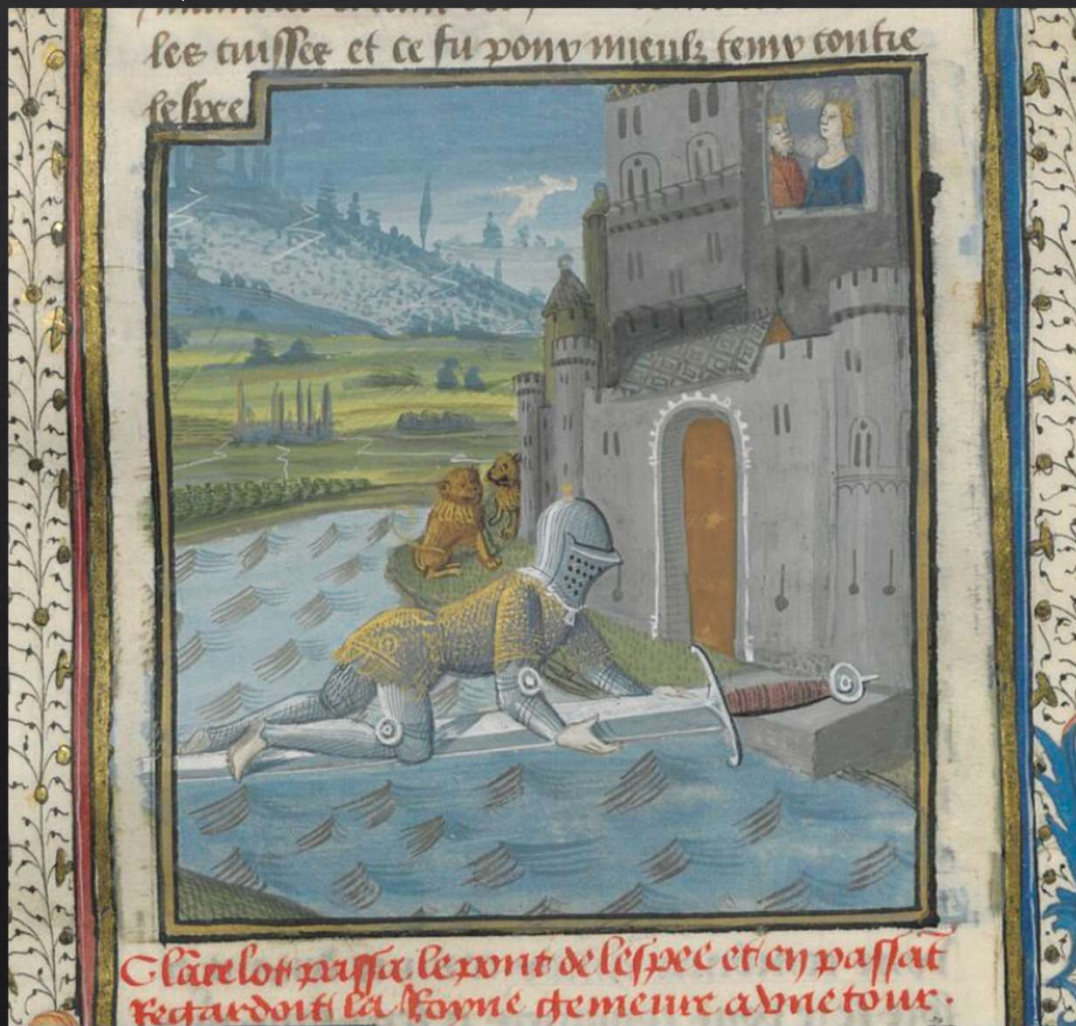 les cuisses et ce fu pour mieulx tenir contre
lespee
Cy lãcelot passa le pont de lespee et en passãt
Regardoit la Royne genieure a vne tour.